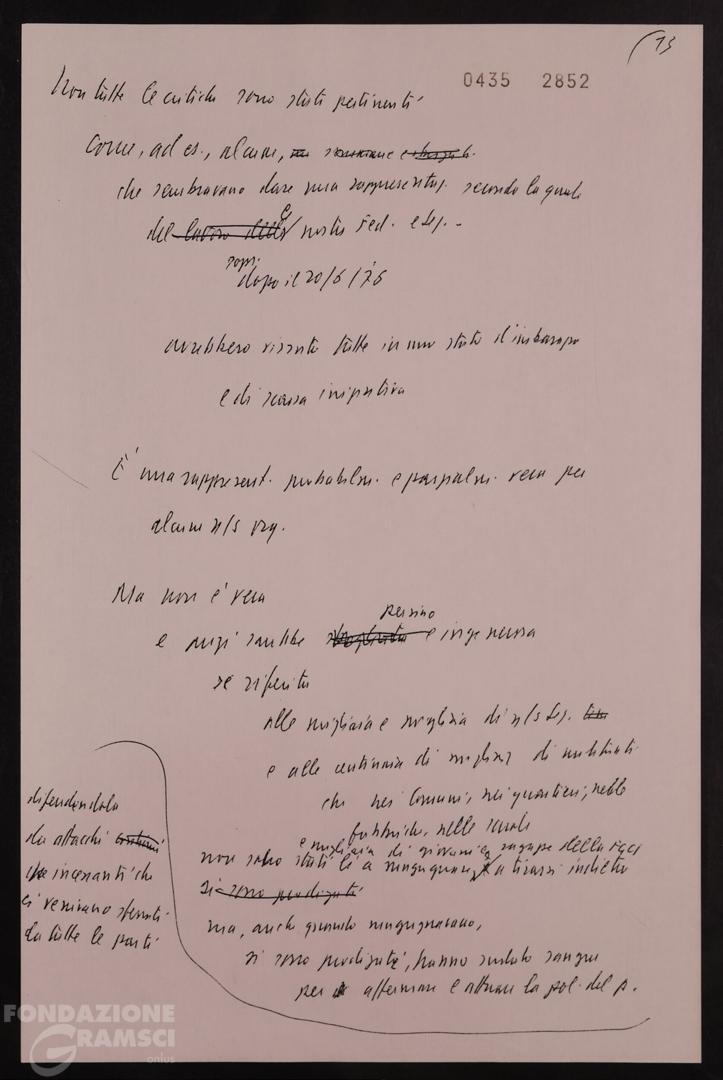 13
0435 2852
Non tutte le critiche sono state pertinenti
Come, ad es., alcune,
che sembravano dare una rappresentaz. secondo la quale
le
del lavoro delle nostre Fed. e sez. -
sopr.
dopo il 20/6/76
avrebbero vissuto tutte in uno stato d'imbarazzo
e di scarsa iniziativa
È una rappresent. probabilm. e parzialm. vera per
alcune n/s org.
Ma non è vera
persino
e anzi sarebbe sbagliata e ingenerosa
se riferita
alle migliaia e migliaia di n/s sez.
e alle centinaia di migliaia di militanti
che nei Comuni, nei quartieri, nelle
fabbriche, nelle scuole
e migliaia di giovani e ragazze della FGCI
non sono stati lì a mugugnare, o a tirarsi indietro
si sono prodigati
ma, anche quando mugugnavano,
si sono prodigati, hanno sudato sangue
per affermare e attuare la pol. del p.
difendendola
da attacchi continui
incessanti che
ci venivano sferrati
da tutte le parti
FONDAZIONE
GRAMSCI
onlus